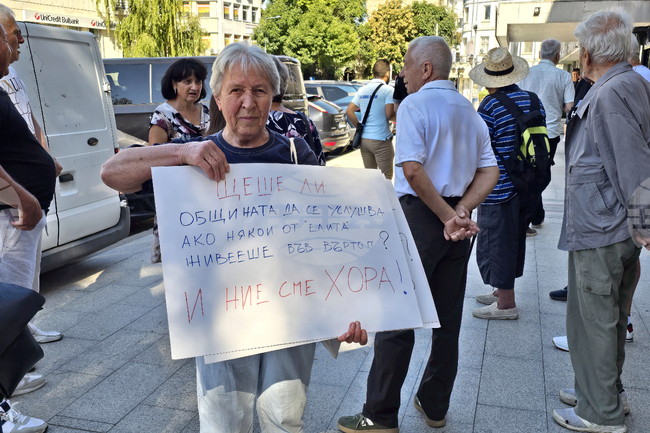 UniCredit Bulbank
UniCredit Bulbank
ЩЕШЕ ЛИ
ОБЩИНАТА ДА СЕ УСЛУШВА
АКО НЯКОИ ОТ "ЕЛИТА"
ЖИВЕЕШЕ ВЪВ ВЪРТОП?
И НИЕ СМЕ ХОРА!